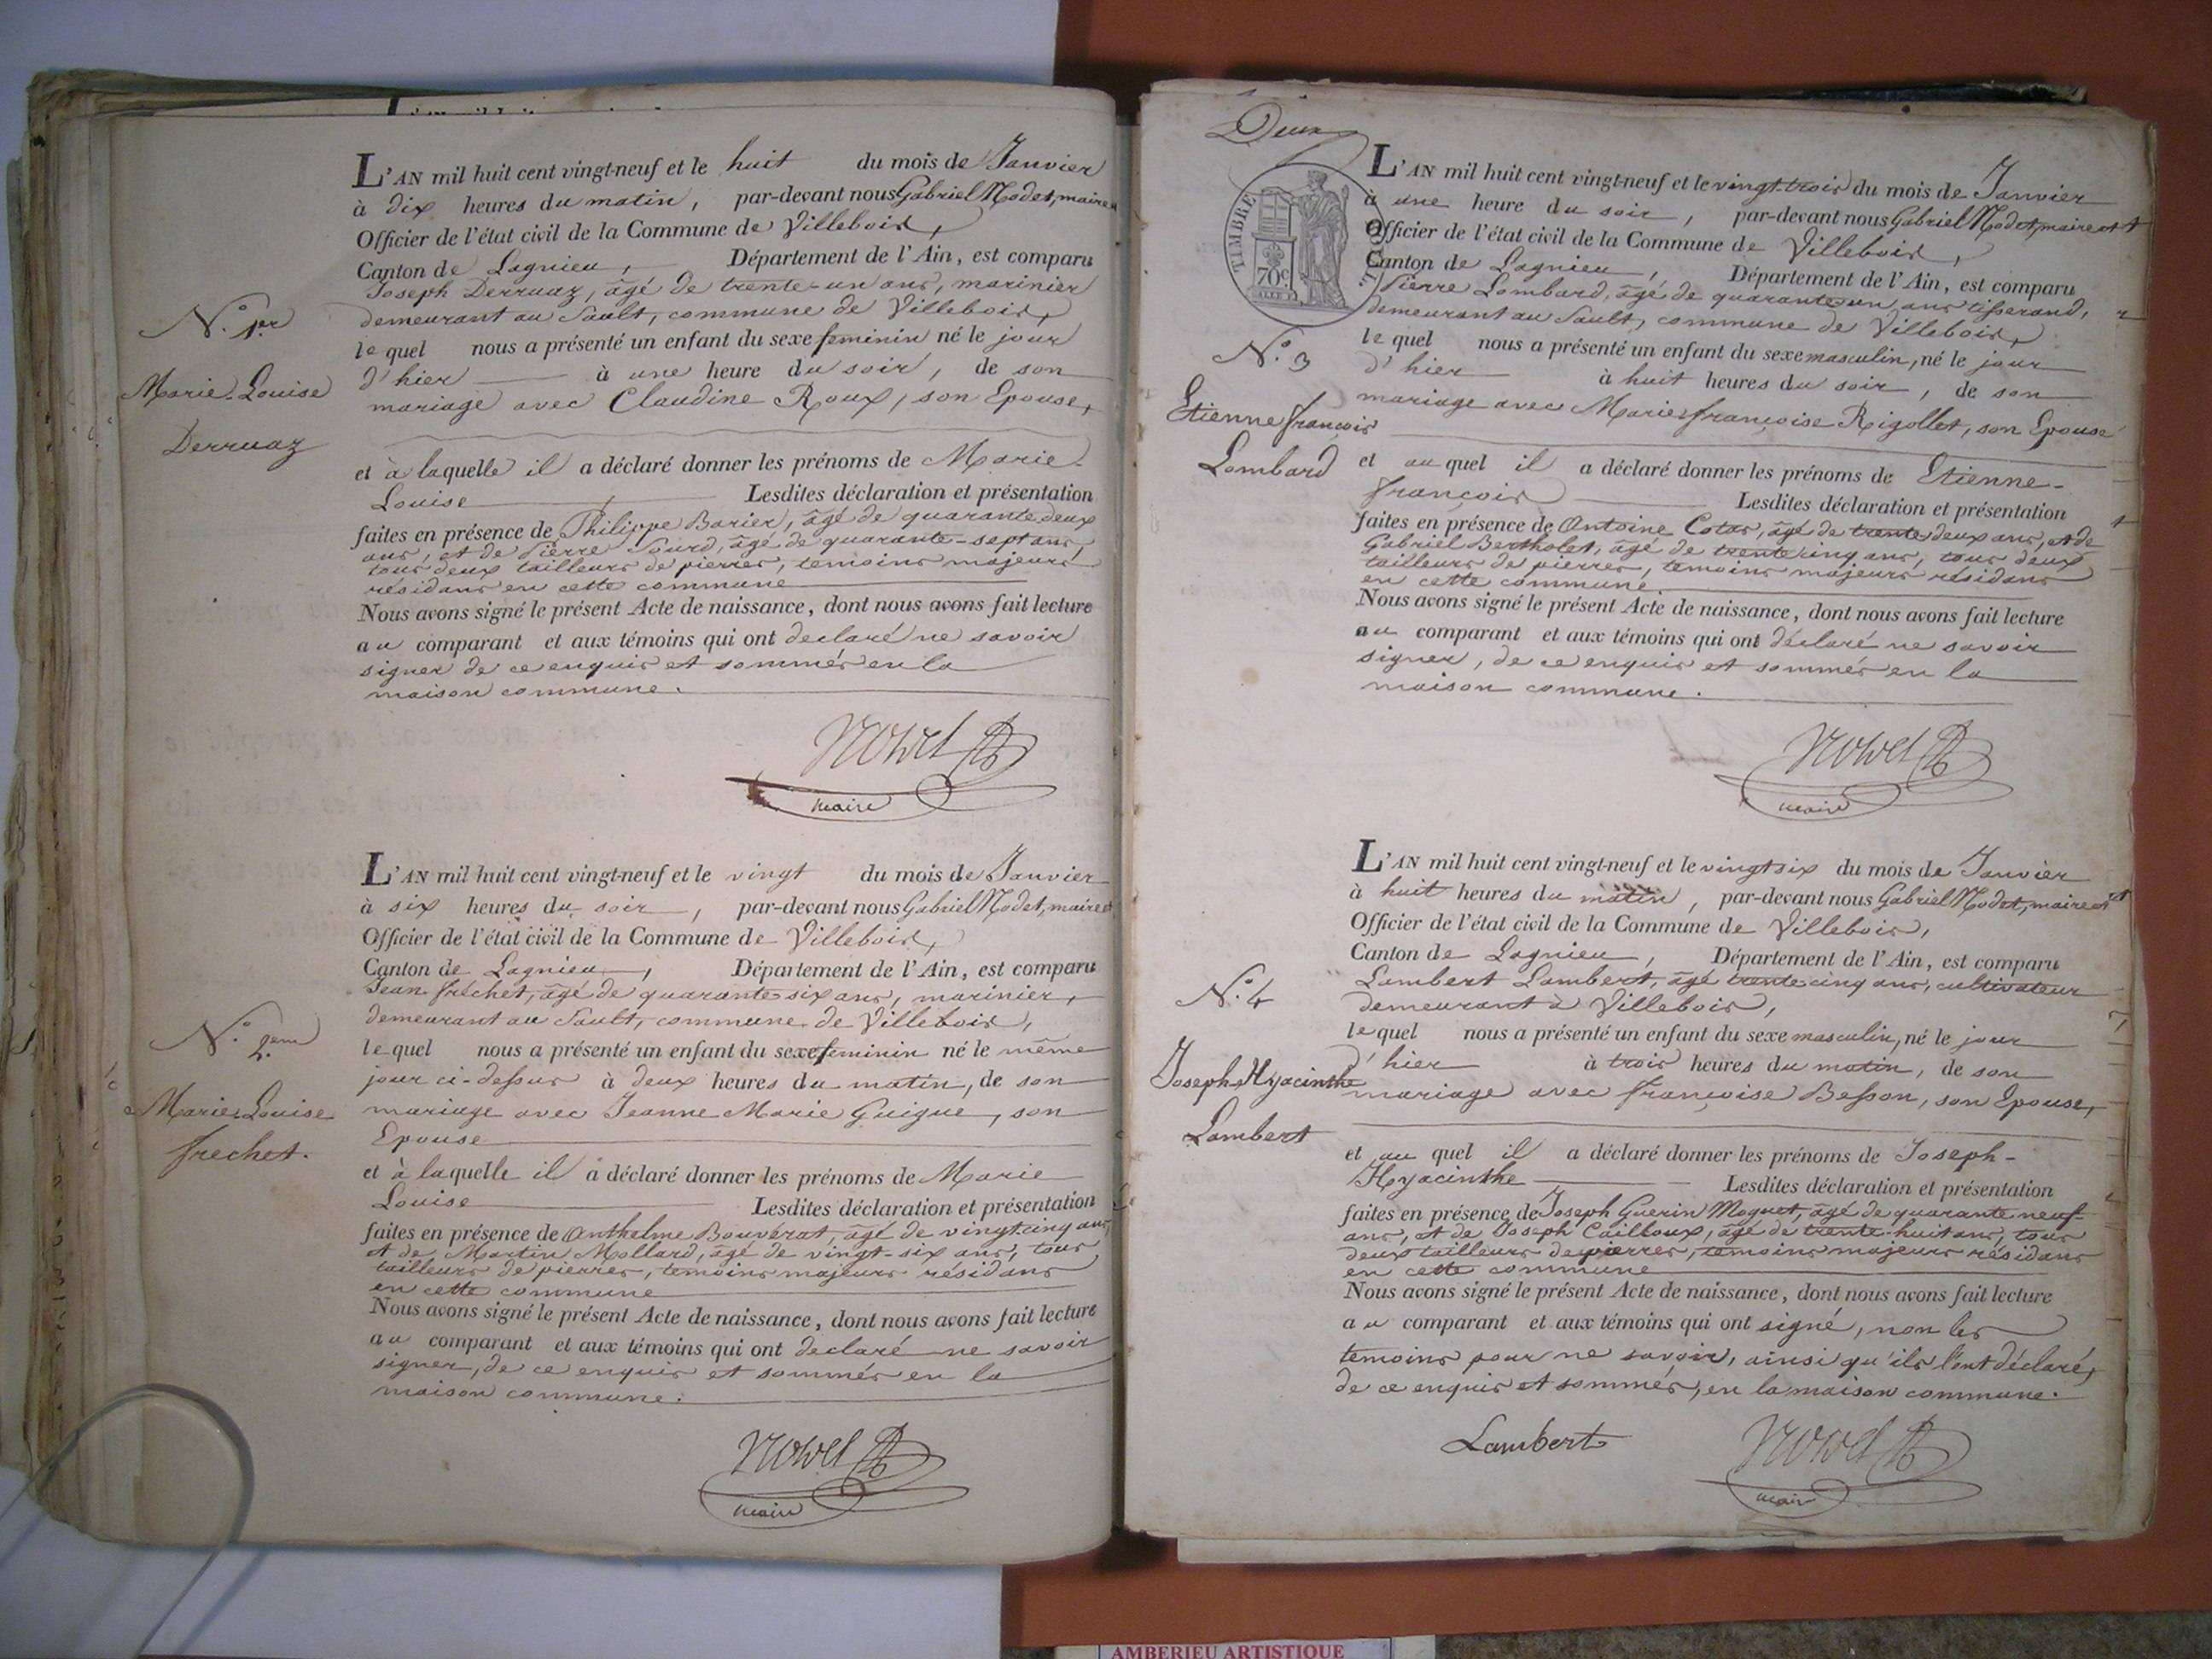 L'AN mil huit cent vingt-neuf et le huit du mois de Janvier
à dix heures du matin, par-devant nous Gabriel Nodet, maire
Officier de l'état civil de la Commune de Villebois,
Canton de Lagnieu, Département de l'Ain, est comparu
Joseph Derruaz, âgé de trente-un ans, marinier
demeurant au Sault, commune de Villebois,
N.º 1.er
lequel nous a présenté un enfant du sexe feminin né le jour
d'hier à une heure du soir, de son
Marie-Louise
mariage avec Claudine Roux, son Epouse,
Derruaz
et à laquelle il a déclaré donner les prénoms de Marie-
Louise Lesdites déclaration et présentation
faites en présence de Philippe Barier, âgé de quarante deux
ans, et de Pierre Sourd, âgé de quarante-sept ans,
tous deux tailleurs de pierres, temoins majeurs
résidans en cette commune
Nous avons signé le présent Acte de naissance, dont nous avons fait lecture
au comparant et aux témoins qui ont declaré ne savoir
signer de ce enquis et sommés en la
maison commune.
Nodet
maire
L'AN mil huit cent vingt-neuf et le vingt du mois de Janvier
à six heures du soir, par-devant nous Gabriel Nodet, maire et
Officier de l'état civil de la Commune de Villebois,
Canton de Lagnieu, Département de l'Ain, est comparu
Jean Fréchet, âgé de quarante six ans, marinier,
demeurant au Sault, commune de Villebois,
N.º 2.eme
lequel nous a présenté un enfant du sexe feminin né le même
jour ci-dessus à deux heures du matin, de son
Marie Louise
mariage avec Jeanne Marie Guigue, son
Epouse
frechet.
et à laquelle il a déclaré donner les prénoms de Marie
Louise Lesdites déclaration et présentation
faites en présence de Anthelme Bouvérat, âgé de vingt-cinq ans,
et de Martin Mollard, âgé de vingt-six ans, tous
tailleurs de pierres, temoins majeurs résidans
en cette commune
Nous avons signé le présent Acte de naissance, dont nous avons fait lecture
au comparant et aux témoins qui ont declaré ne savoir
signer, de ce enquis et sommés en la
maison commune.
Nodet
maire
Deux
TIMBRE
70c.
L'AN mil huit cent vingt-neuf et le vingt-trois du mois de Janvier
à une heure du soir, par-devant nous Gabriel Nodet, maire et
Officier de l'état civil de la Commune de Villebois,
Canton de Lagnieu, Département de l'Ain, est comparu
Pierre Lombard, âgé de quarante-un ans tisserand,
demeurant au Sault, commune de Villebois,
N.º 3
lequel nous a présenté un enfant du sexe masculin, né le jour
d'hier à huit heures du soir, de son
mariage avec Marie françoise Rigollet, son Epouse
Etienne françois
Lombard
et auquel il a déclaré donner les prénoms de Etienne-
françois Lesdites déclaration et présentation
faites en présence de Antoine Cotar, âgé de trente deux ans, et de
Gabriel Bertholet, âgé de trente cinq ans, tous deux
tailleurs de pierres, temoins majeurs résidans
en cette commune
Nous avons signé le présent Acte de naissance, dont nous avons fait lecture
au comparant et aux témoins qui ont déclaré ne savoir
signer, de ce enquis et sommés en la
maison commune.
Nodet
maire
L'AN mil huit cent vingt-neuf et le vingt six du mois de Janvier
à huit heures du matin, par-devant nous Gabriel Nodet, maire et
Officier de l'état civil de la Commune de Villebois,
Canton de Lagnieu, Département de l'Ain, est comparu
Lambert Lambert, âgé trente cinq ans, cultivateur
demeurant à Villebois,
N.º 4
lequel nous a présenté un enfant du sexe masculin, né le jour
d'hier à trois heures du matin, de son
Joseph Hyacinthe
mariage avec françoise Besson, son Epouse,
Lambert
et au quel il a déclaré donner les prénoms de Joseph-
Hyacinthe Lesdites déclaration et présentation
faites en présence de Joseph Guerin Moguet, âgé de quarante neuf
ans, et de Joseph Cailloux, âgé de trente-huit ans, tous
deux tailleurs de pierres, temoins majeurs résidans
en cette commune
Nous avons signé le présent Acte de naissance, dont nous avons fait lecture
au comparant et aux témoins qui ont signé, non les
temoins pour ne savoir, ainsi qu'ils l'ont déclaré,
de ce enquis et sommés, en la maison commune.
Lambert
Nodet
maire
AMBERIEU ARTISTIQUE